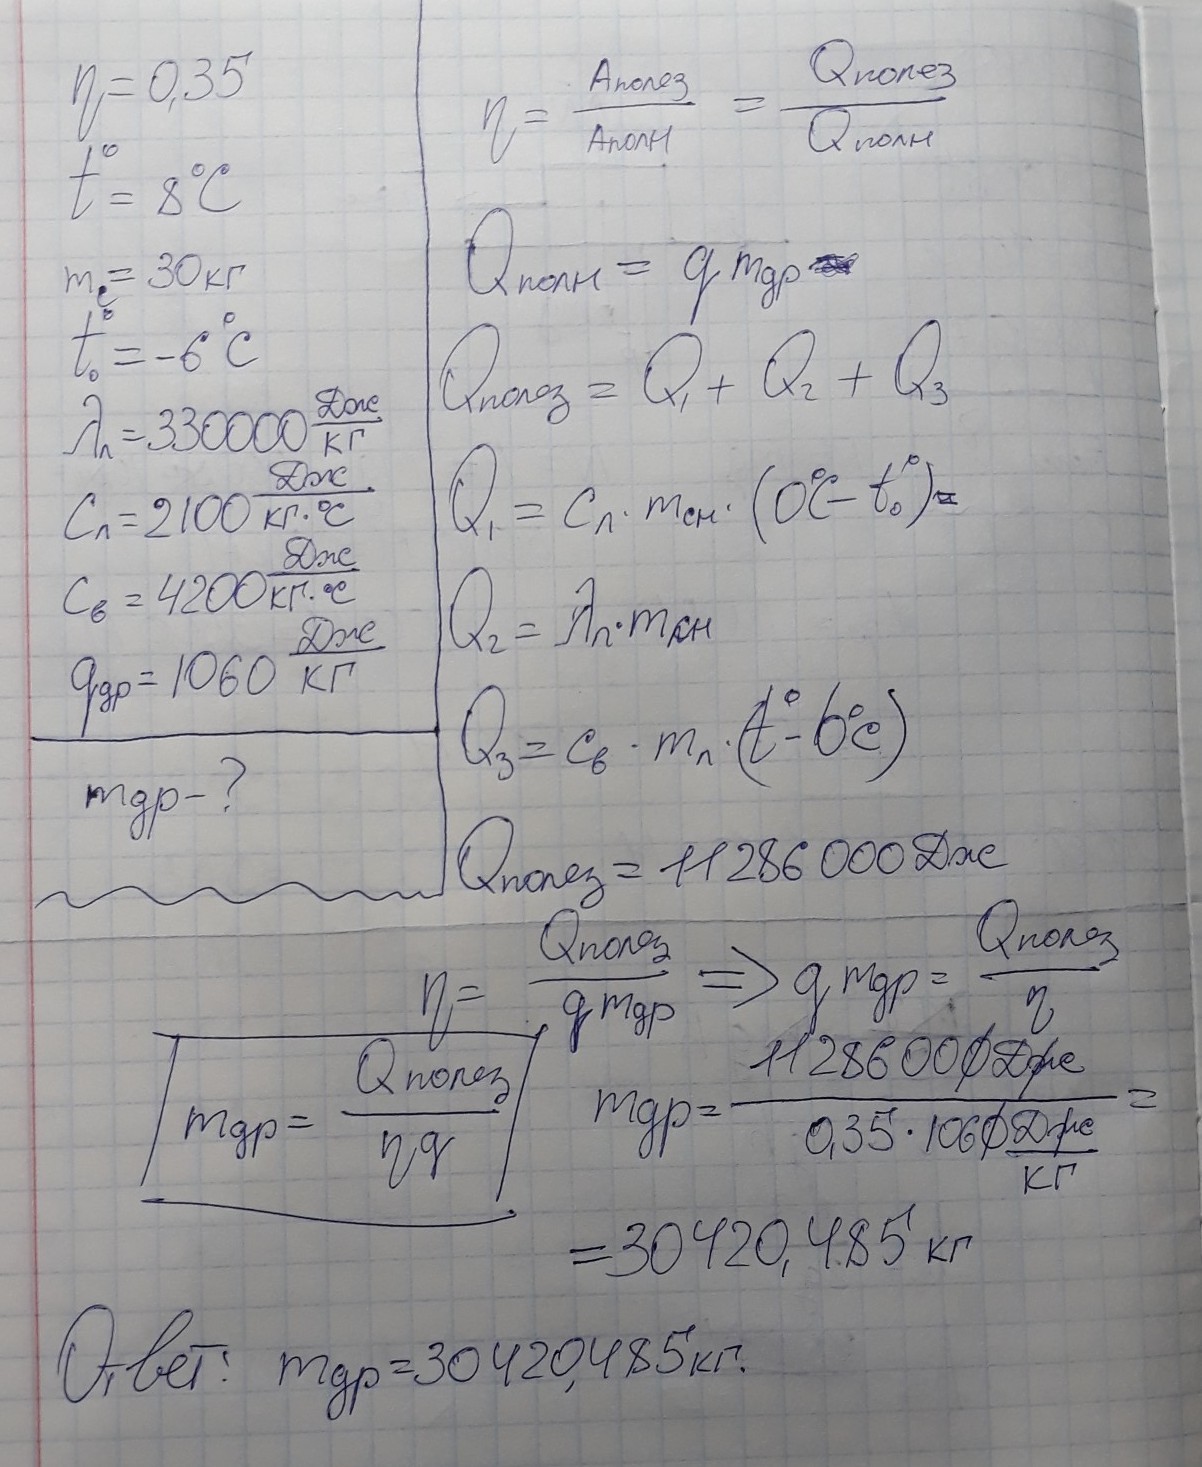 η = 0,35
t° = 8°C
mс = 30 кг
t°₀ = -6°C
λл = 330000 Дж/кг
Cл = 2100 Дж/кг·°C
Cв = 4200 Дж/кг·°C
qдр = 1060 Дж/кг
mдр - ?
η = Aполез/Aполн = Qполез/Qполн
Qполн = q mдр
Qполез = Q₁ + Q₂ + Q₃
Q₁ = Cл · mсн · (0°C - t°₀) =
Q₂ = λл · mсн
Q₃ = Cв · mл · (t° - 0°C)
Qполез = 11286000 Дж
η = Qполез/q mдр => q mдр = Qполез/η
mдр = Qполез/ηq
mдр = 11286000 Дж/0,35 · 1060 Дж/кг =
= 30420,485 кг
Ответ: mдр = 30420,485 кг.